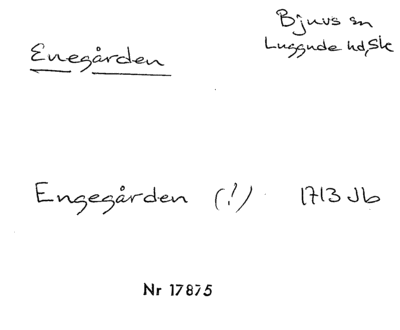 Bjuvs sn
Luggude hd, Sk
Enegården
Engegården (!) 1713 Jb
Nr 17875